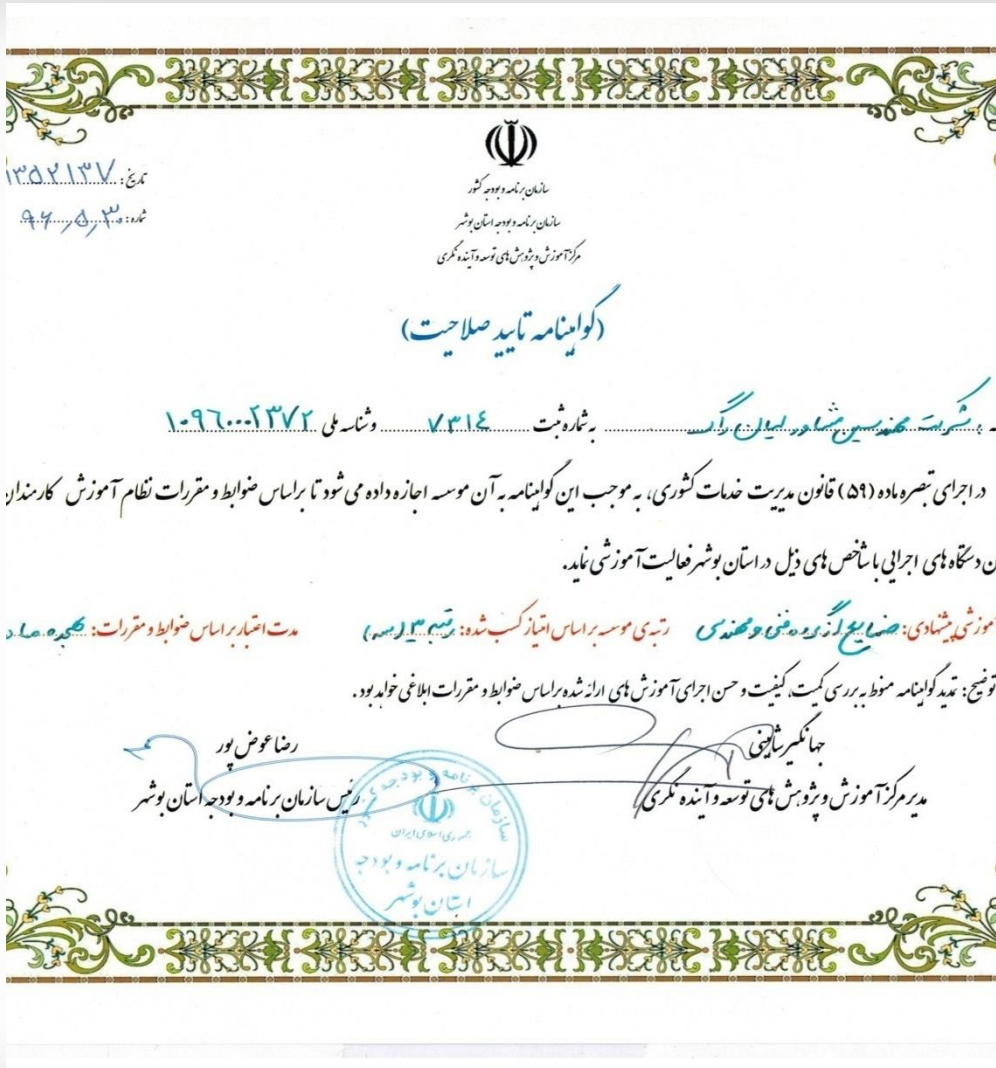 تاریخ: ۱۳۵۲۱۳۷
شماره: ۹۶٫۵٫۳۰
سازمان برنامه و بودجه کشور
سازمان برنامه و بودجه استان بوشهر
مرکز آموزش و پژوهش های توسعه و آینده نگری
(گواهینامه تایید صلاحیت)
شرکت مهندسین مشاور لیان راک به شماره ثبت ۷۳۱۴ و شناسه ملی
در اجرای تبصره ماده (۵۹) قانون مدیریت خدمات کشوری، به موجب این گواهینامه به آن موسسه اجازه داده می شود تا براساس ضوابط و مقررات نظام آموزش کارمندان
دستگاه های اجرایی با شاخص های ذیل در استان بوشهر فعالیت آموزشی نماید.
پیشنهادی: صنایع انرژی، فنی و مهندسی رتبه ی موسسه براساس امتیاز کسب شده: رتبه ۳ (سه) مدت اعتبار براساس ضوابط و مقررات: هجده ماه
توضیح: تمدید گواهینامه منوط به بررسی کمیت، کیفیت و حسن اجرای آموزش های ارائه شده براساس ضوابط و مقررات ابلاغی خواهد بود.
جهانگیر شاپینی
مدیر مرکز آموزش و پژوهش های توسعه و آینده نگری
رضا عوض پور
رئیس سازمان برنامه و بودجه استان بوشهر
سازمان برنامه و بودجه کشور
جمهوری اسلامی ایران
سازمان برنامه و بودجه
استان بوشهر